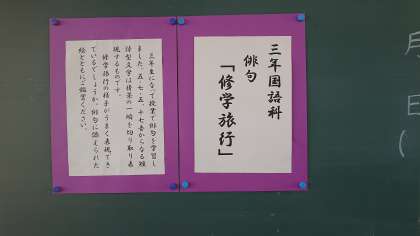 三年国語科
俳句
「修学旅行」
三年生になって授業で俳句を学習し
ました。五・七・五、十七音からなる短
詩型文学は情景の一瞬を切り取り表
現するものです。
修学旅行の様子がうまく表現でき
ているでしょうか。俳句に添えられた
絵とともにご鑑賞ください。
月
日
(